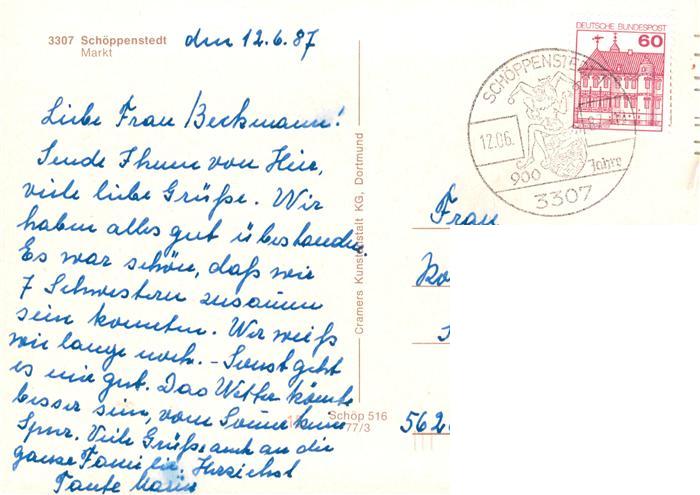 3307 Schöppenstedt
Markt
den 12.6.87
Liebe Frau Beckmann!
Sende Ihnen von Hier,
viele liebe Grüße. Wir
haben alles gut überstanden.
Es war schön, daß wir
7 Schwestern zusamm
sein konnten. Wer weiß
wie lange noch. – Sonst geht
es mir gut. Das Wetter könnte
besser sein, vom Sonne keine
Spur. Viele Grüße auch an die
ganze Familie, Herzlichst
Tante Maria
Cramers Kunstanstalt KG, Dortmund
Schöp 516
77/3
DEUTSCHE BUNDESPOST
60
SCHÖPPENSTEDT
12.06.
900 Jahre
3307
Frau
562